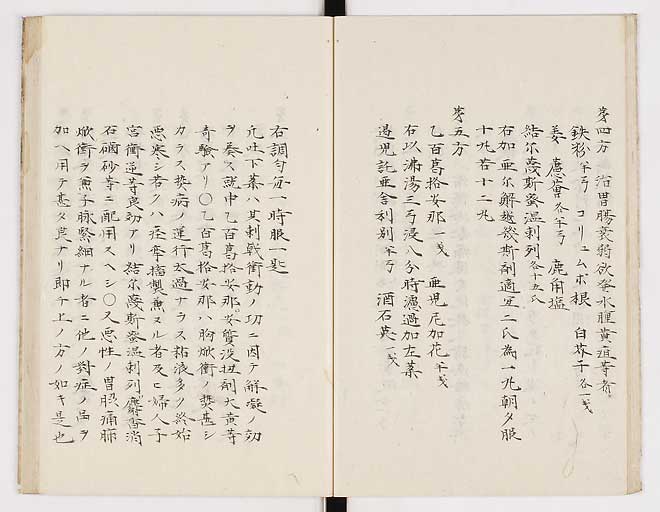 第四方 治胃腸衰弱欲発水腫黄疸等者
鉄粉 半弓 コリュムボ根 白芥子 各一戔
姜 蘆薈 各半弓 鹿角塩
結尓蔑斯蛮温刺列 各十五氏
右加亜尓解越幾斯剤適宜二氏為一丸朝夕服
十丸若十二丸
第五方
乙百葛拾安那 一戔 亜児尼加花 半戔
右以沸湯三弓浸八分時濾過加左薬
過児託亜舎利別 半弓 酒石英 一戔
右調匀毎一時服一匙
凡吐下薬ハ其刺戟衝動ノ功ニ因テ解凝ノ効
ヲ奏ス就中乙百葛拾安那安質没扭剤大黄等
奇験アリ〇乙百葛拾安那ハ胸焮衝ノ熱甚シ
カラス熱病ノ運行太過ナラス粘液多ク終始
悪寒シ若クハ痙攣搐掣兼スル者及ヒ婦人子
宮衝逆等良効アリ結尓蔑斯蛮温刺列麝香消
石硇砂等ニ配用スヘシ〇又悪性ノ胃腸痛
焮衝ヲ兼子脉緊細ナル者ニ他ノ対症ノ品ヲ
加ヘ用テ甚タ良ナリ即今上ノ方ノ如キ是也